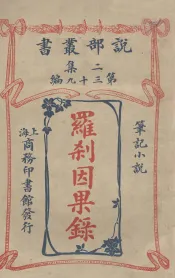 說部叢書
二集
第三十九編
筆記小說
羅刹因果錄
上海
商務印書館發行